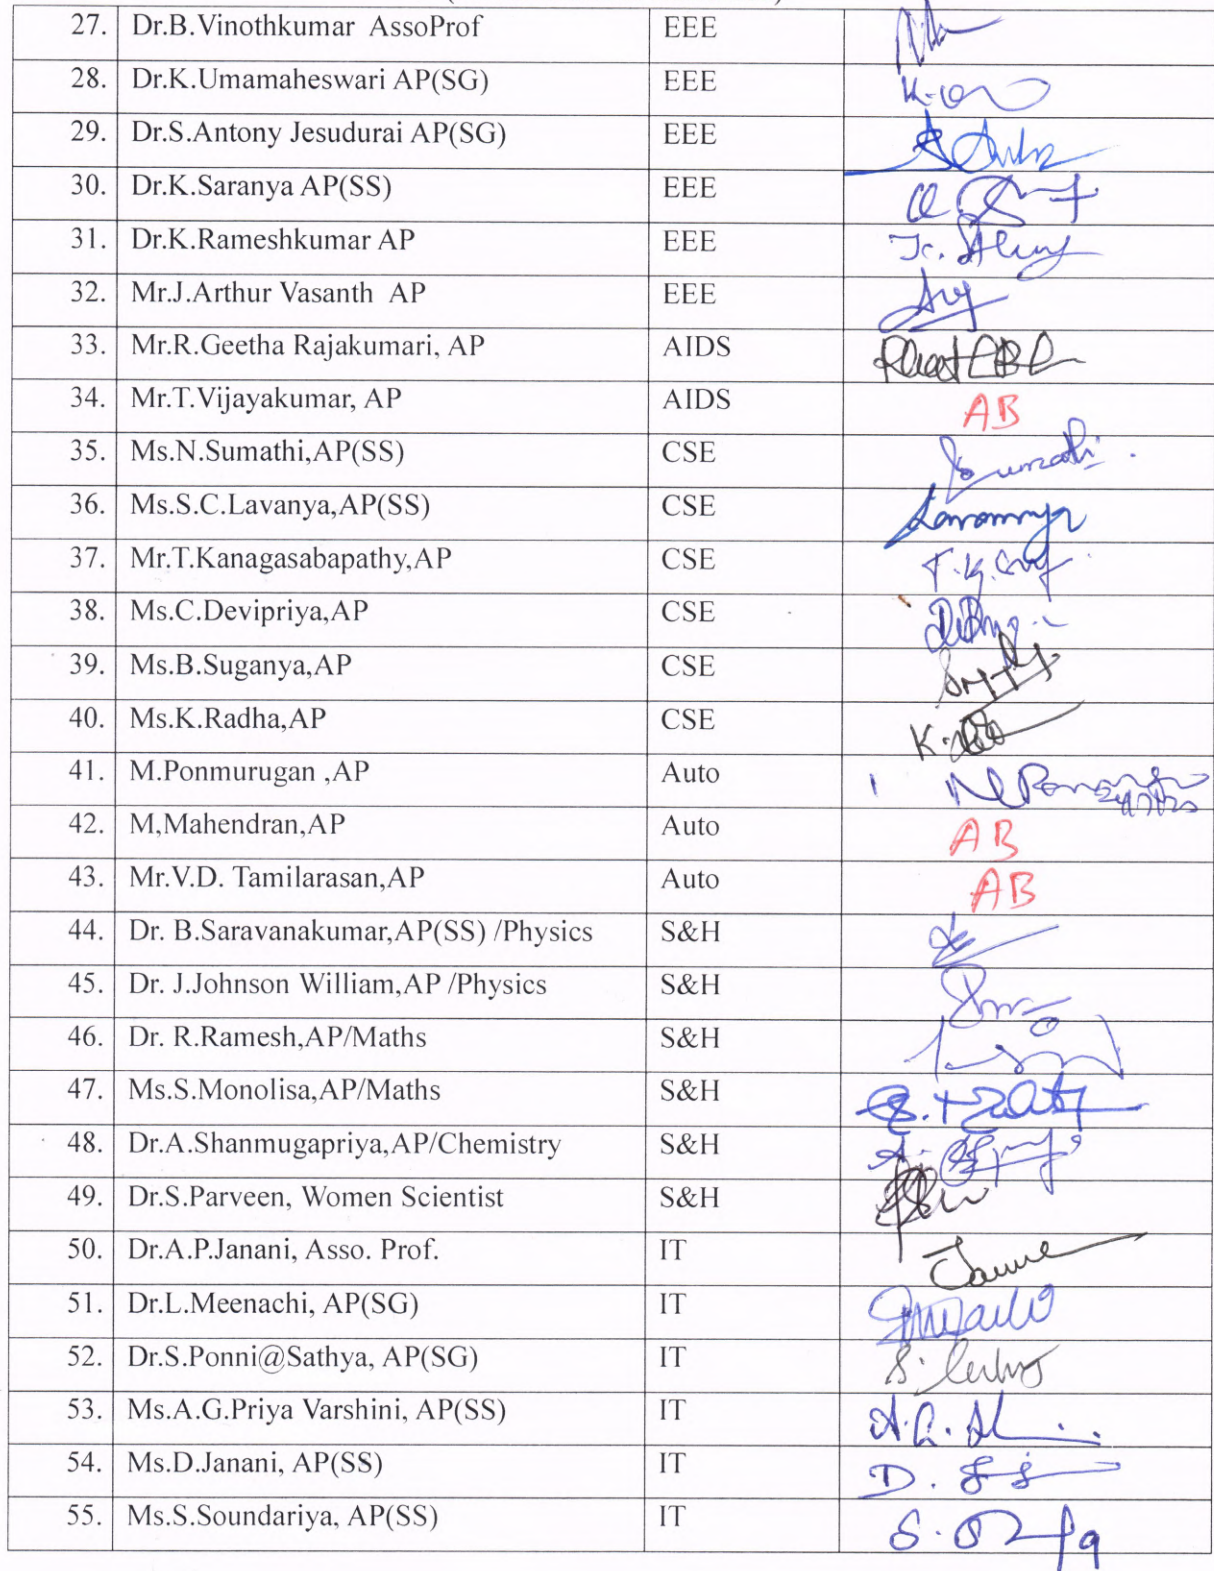 27. Dr.B.Vinothkumar AssoProf EEE
28. Dr.K.Umamaheswari AP(SG) EEE
29. Dr.S.Antony Jesudurai AP(SG) EEE
30. Dr.K.Saranya AP(SS) EEE
31. Dr.K.Rameshkumar AP EEE
32. Mr.J.Arthur Vasanth AP EEE
33. Mr.R.Geetha Rajakumari, AP AIDS
34. Mr.T.Vijayakumar, AP AIDS AB
35. Ms.N.Sumathi,AP(SS) CSE Sumathi
36. Ms.S.C.Lavanya,AP(SS) CSE
37. Mr.T.Kanagasabapathy,AP CSE
38. Ms.C.Devipriya,AP CSE
39. Ms.B.Suganya,AP CSE
40. Ms.K.Radha,AP CSE
41. M.Ponmurugan ,AP Auto
42. M,Mahendran,AP Auto AB
43. Mr.V.D. Tamilarasan,AP Auto AB
44. Dr. B.Saravanakumar,AP(SS) /Physics S&H
45. Dr. J.Johnson William,AP /Physics S&H
46. Dr. R.Ramesh,AP/Maths S&H
47. Ms.S.Monolisa,AP/Maths S&H
48. Dr.A.Shanmugapriya,AP/Chemistry S&H
49. Dr.S.Parveen, Women Scientist S&H
50. Dr.A.P.Janani, Asso. Prof. IT
51. Dr.L.Meenachi, AP(SG) IT
52. Dr.S.Ponni@Sathya, AP(SG) IT
53. Ms.A.G.Priya Varshini, AP(SS) IT
54. Ms.D.Janani, AP(SS) IT
55. Ms.S.Soundariya, AP(SS) IT